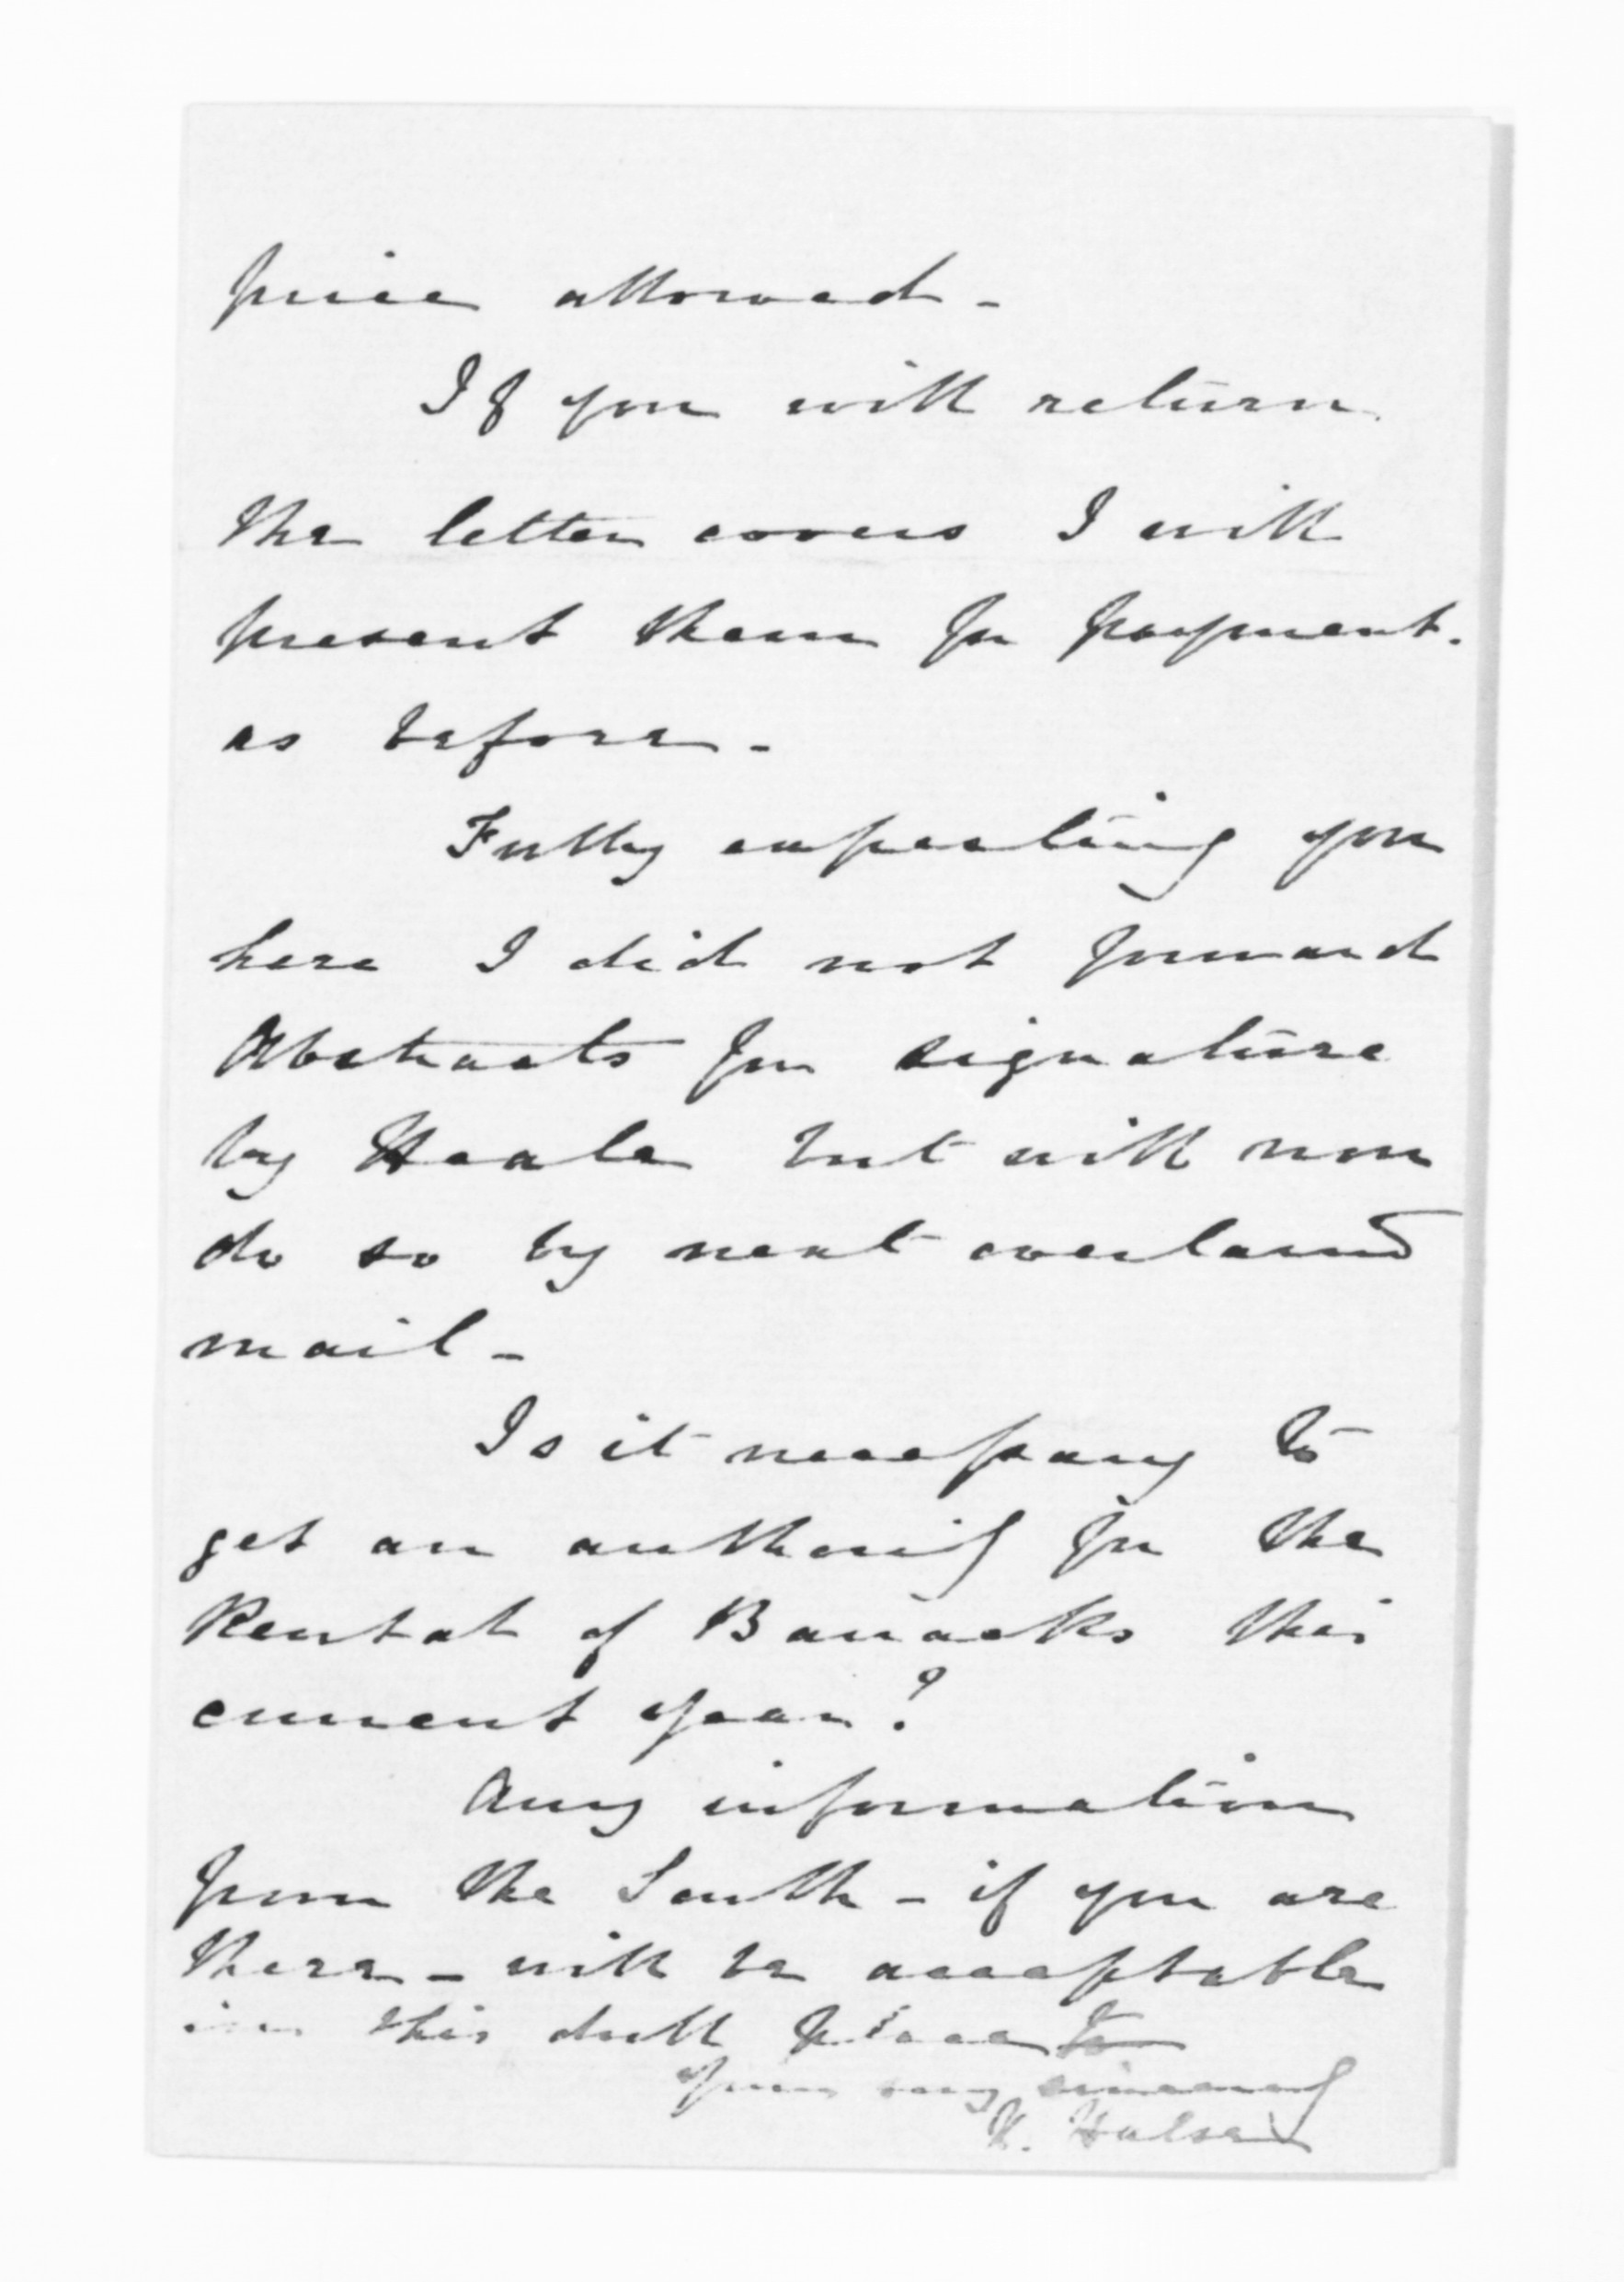 price allowed -
If you will return
the letter covers I will
present them for payment.
as before -
Fully expecting you
here I did not forward
Abstracts for signature
by Heale but will now
do so by next overland
mail -
Is it necessary to
get an authority for the
Rental of Barracks this
current year?
Any information
from the South - if you are
there - will be acceptable
in this dull place
Yours very sincerely